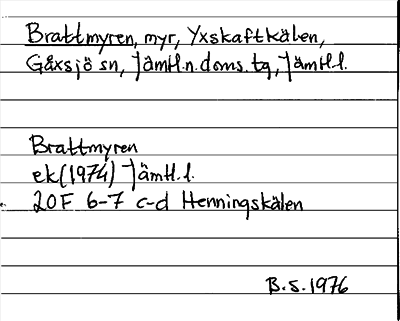 Brattmyren, myr, Yxskaftkälen,
Gåxsjö sn, Jämtl.n.doms.tg, Jämtl.l.
Brattmyren
ek(1974) Jämtl.l.
20F 6-7 c-d Henningskälen
B.S.1976